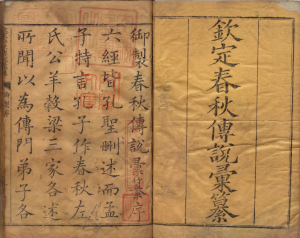 欽定春秋傳說彙纂
御製春秋傳說彙纂序
六經皆孔聖刪述而孟
子特言孔子作春秋左
氏公羊穀梁三家各述
所聞以為傳門弟子各